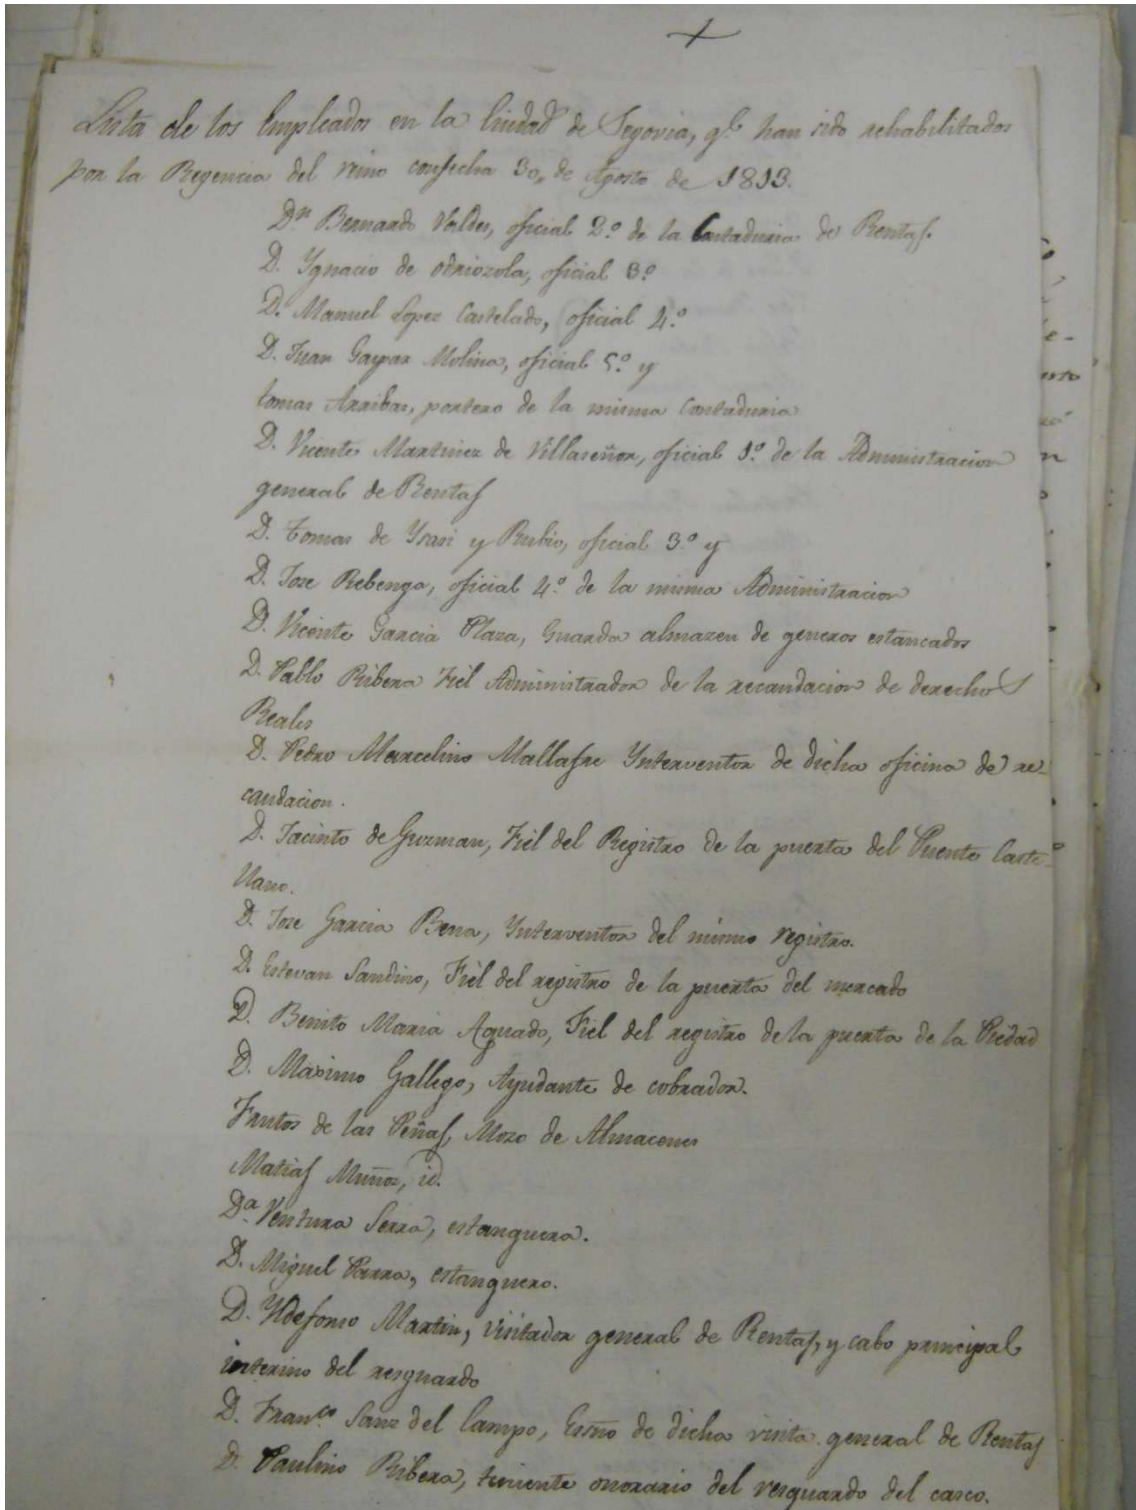 Lista de los Empleados en la Ciudad de Segovia, qe. han sido rehabilitados
por la Regencia del reino confecha 30,, de Agosto de 1813.
Dn. Bernardo Valdes, oficial 2.º de la Contaduria de Rentas.
D. Ygnacio de Odriozola, oficial 3.º
D. Manuel Lopez Castelado, oficial 4.º
D. Juan Gaspar Molina, oficial 5.º y
tomas Arribas, portero de la misma Contaduria
D. Vicente Martinez de Villaseñor, oficial 1.º de la Administracion
general de Rentas
D. Tomas de Ysasi y Rubio, oficial 3.º y
D. Jose Rebenga, oficial 4.º de la misma Administracion
D. Vicente Garcia Plaza, Guarda almazen de generos estancados
D. Pablo Ribera Fiel Administrador de la recaudacion de derechos
Reales
D. Pedro Marcelino Mallafre Ynterventor de dicha oficina de re-
caudacion.
D. Jacinto de Guzman, Fiel del Registro de la puerta del Puente Caste-
llano.
D. Jose Garcia Bena, Ynterventor del mismo registro.
D. Estevan Sandino, Fiel del registro de la puerta del mercado
D. Benito Maria Aguado, Fiel del registro de la puerta de la Piedad
D. Maximo Gallego, Ayudante de cobrador.
Frutos de las Peñas, Mozo de Almacenes
Matias Muñoz, id.
Da. Ventura Serra, estanquera.
D. Miguel Parra, estanquero.
D. Yldefonso Martin, visitador general de Rentas, y cabo principal
interino del resguardo
D. Franco. Sanz del Campo, Essno de dicha visita general de Rentas
D. Paulino Ribera, teniente onorario del resguardo del casco.